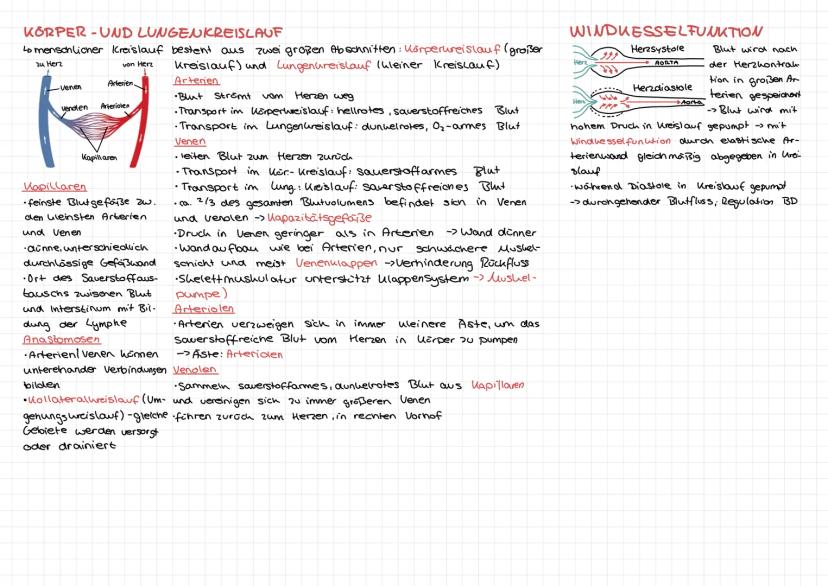 KÖRPER-UND LUNGENKREISLAUF
↳ menschlicher Kreislauf besteht aus zwei großen Abschnitten: Körperkreislauf (großer
Kreislauf) und Lungenkreislauf (kleiner Kreislauf)
zu Herz
von Herz
Venen
Arterien
Venolen
Arteriolen
Kapillaren
Kapillaren
·feinste Blutgefäße zw.
den kleinsten Arterien
und Venen
·dünne, unterschiedlich
durchlässige Gefäßwand
·Ort des Sauerstoffaus-
tauschs zwischen Blut
und Interstitium mit Bil-
dung der Lymphe
Anastomosen
·Arterien/Venen können
untereinander Verbindungen
bilden
·Kollateralkreislauf (Um-
gehungskreislauf) - gleiche
Gebiete werden versorgt
oder drainiert
Arterien
·Blut strömt vom Herzen weg
·Transport im Körperkreislauf: hellrotes, sauerstoffreiches Blut
·Transport im Lungenkreislauf: dunkelrotes, O₂-armes Blut
Venen
·leiten Blut zum Herzen zurück
·Transport im Kör-Kreislauf: sauerstoffarmes Blut
·Transport im Lung.: Kreislauf: sauerstoffreiches Blut
·ca. 2/3 des gesamten Blutvolumens befindet sich in Venen
und Venolen -> Kapazitätsgefäße
·Druck in Venen geringer als in Arterien -> Wand dünner
·Wandaufbau wie bei Arterien, nur schwächere Muskel-
schicht und meist Venenklappen -> Verhinderung Rückfluss
·Skelettmuskulatur unterstützt Klappensystem -> Muskel-
pumpe)
Arteriolen
·Arterien verzweigen sich in immer kleinere Äste, um das
sauerstoffreiche Blut vom Herzen in Körper zu pumpen
-> Äste: Arteriolen
Venolen
·Sammeln sauerstoffarmes, dunkelrotes Blut aus Kapillaren
und vereinigen sich zu immer größeren Venen
·führen zurück zum Herzen, in rechten Vorhof
WINDKESSELFUNKTION
Herzsystole
Herz
AORTA
Herzdiastole
Herz
Aorta
Blut wird nach
der Herzkontrak-
tion in großen Ar-
terien gespeichert
-> Blut wird mit
hohem Druck in Kreislauf gepumpt -> mit
Windkesselfunktion durch elastische Ar-
terienwand gleichmäßig abgegeben in Krei-
slauf
·während Diastole in Kreislauf gepumpt
-> durchgehender Blutfluss, Regulation BD